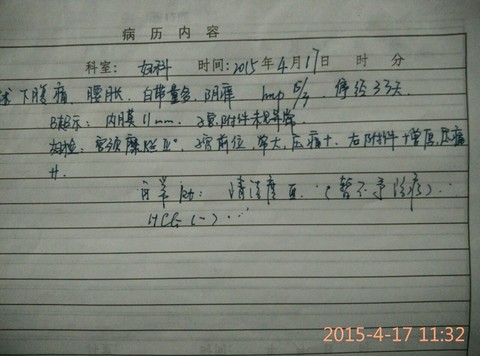 病历内容
科室: 妇科 时间: 2015年4月17日 时 分
下腹痛, 腰胀, 白带量多, 阴痒 lmp 15/3 停经33天
B超示: 内膜11mm, 子宫附件未见异常
妇检: 宫颈糜烂II°, 子宫前位, 常大, 压痛+, 右附件+增厚, 压痛
++.
白带(暂不予治疗)
HCG (-)
2015-4-17 11:32